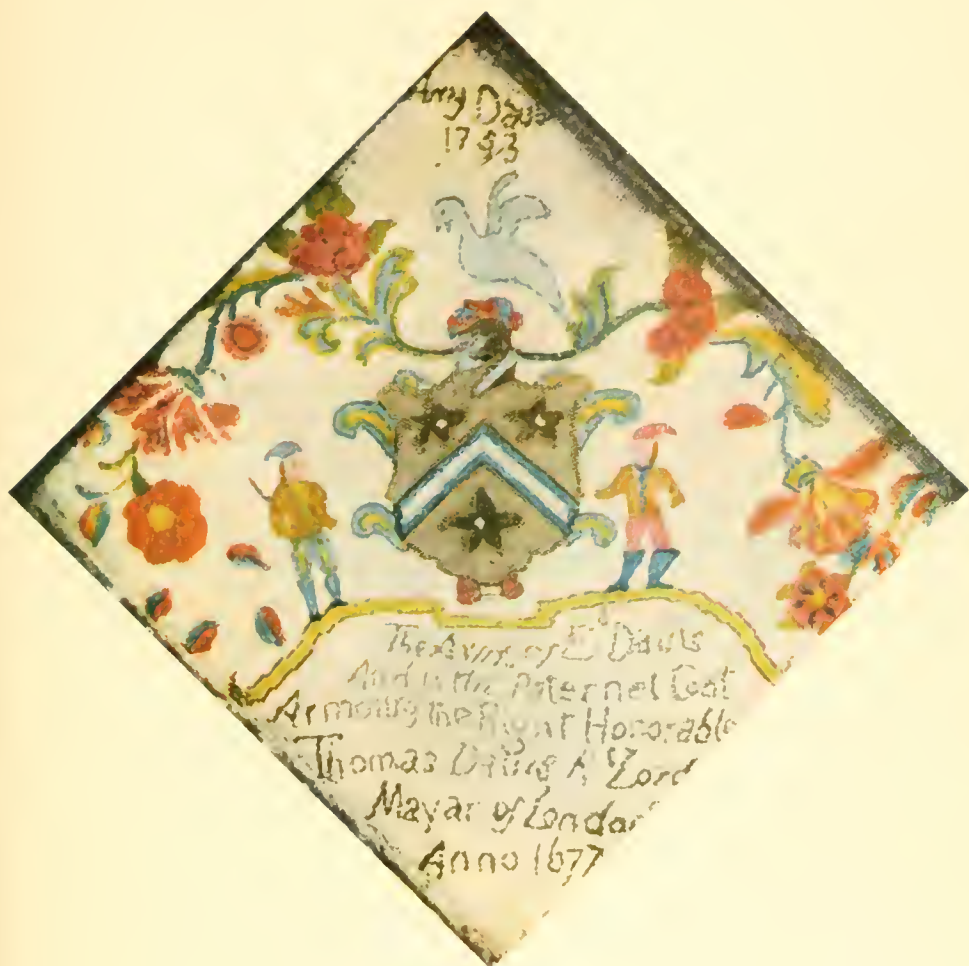 Amy
1753
The Arms of Davis
And is the Paternel Coat
Armour the Right Honorable
Thomas Davis Lord
Mayar of London
Anno 1677